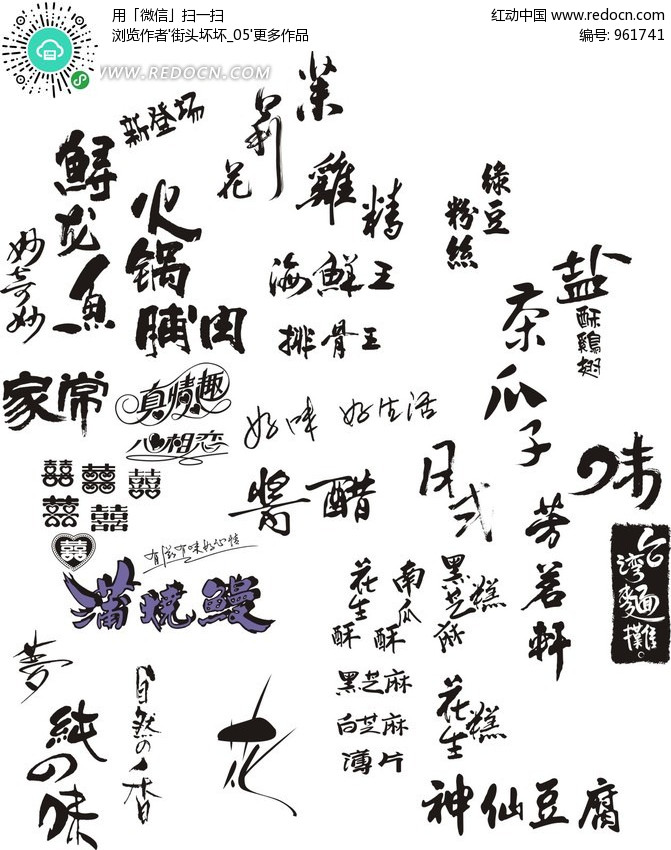 用「微信」扫一扫
浏览作者'街头坏坏_05'更多作品
红动中国 www.redocn.com
编号: 961741
WWW.REDOCN.COM
新登场
茉莉花
鲟龙一鱼
火锅
脯肉
雞精
綠豆
粉絲
妙奇妙
海鮮王
排骨王
盐酥鷄翅
茶瓜子
家常
真情趣
心相恋
好味 好生活
日式
味
醬醋
囍囍囍
囍囍
囍
有滋有味好心情
蒲燒鰻
芳茗軒
台灣麵攤
花生酥
南瓜酥
黑芝麻糕
黑芝麻
白芝麻
薄片
花生糕
夢
純の味
自然の香
花
神仙豆腐